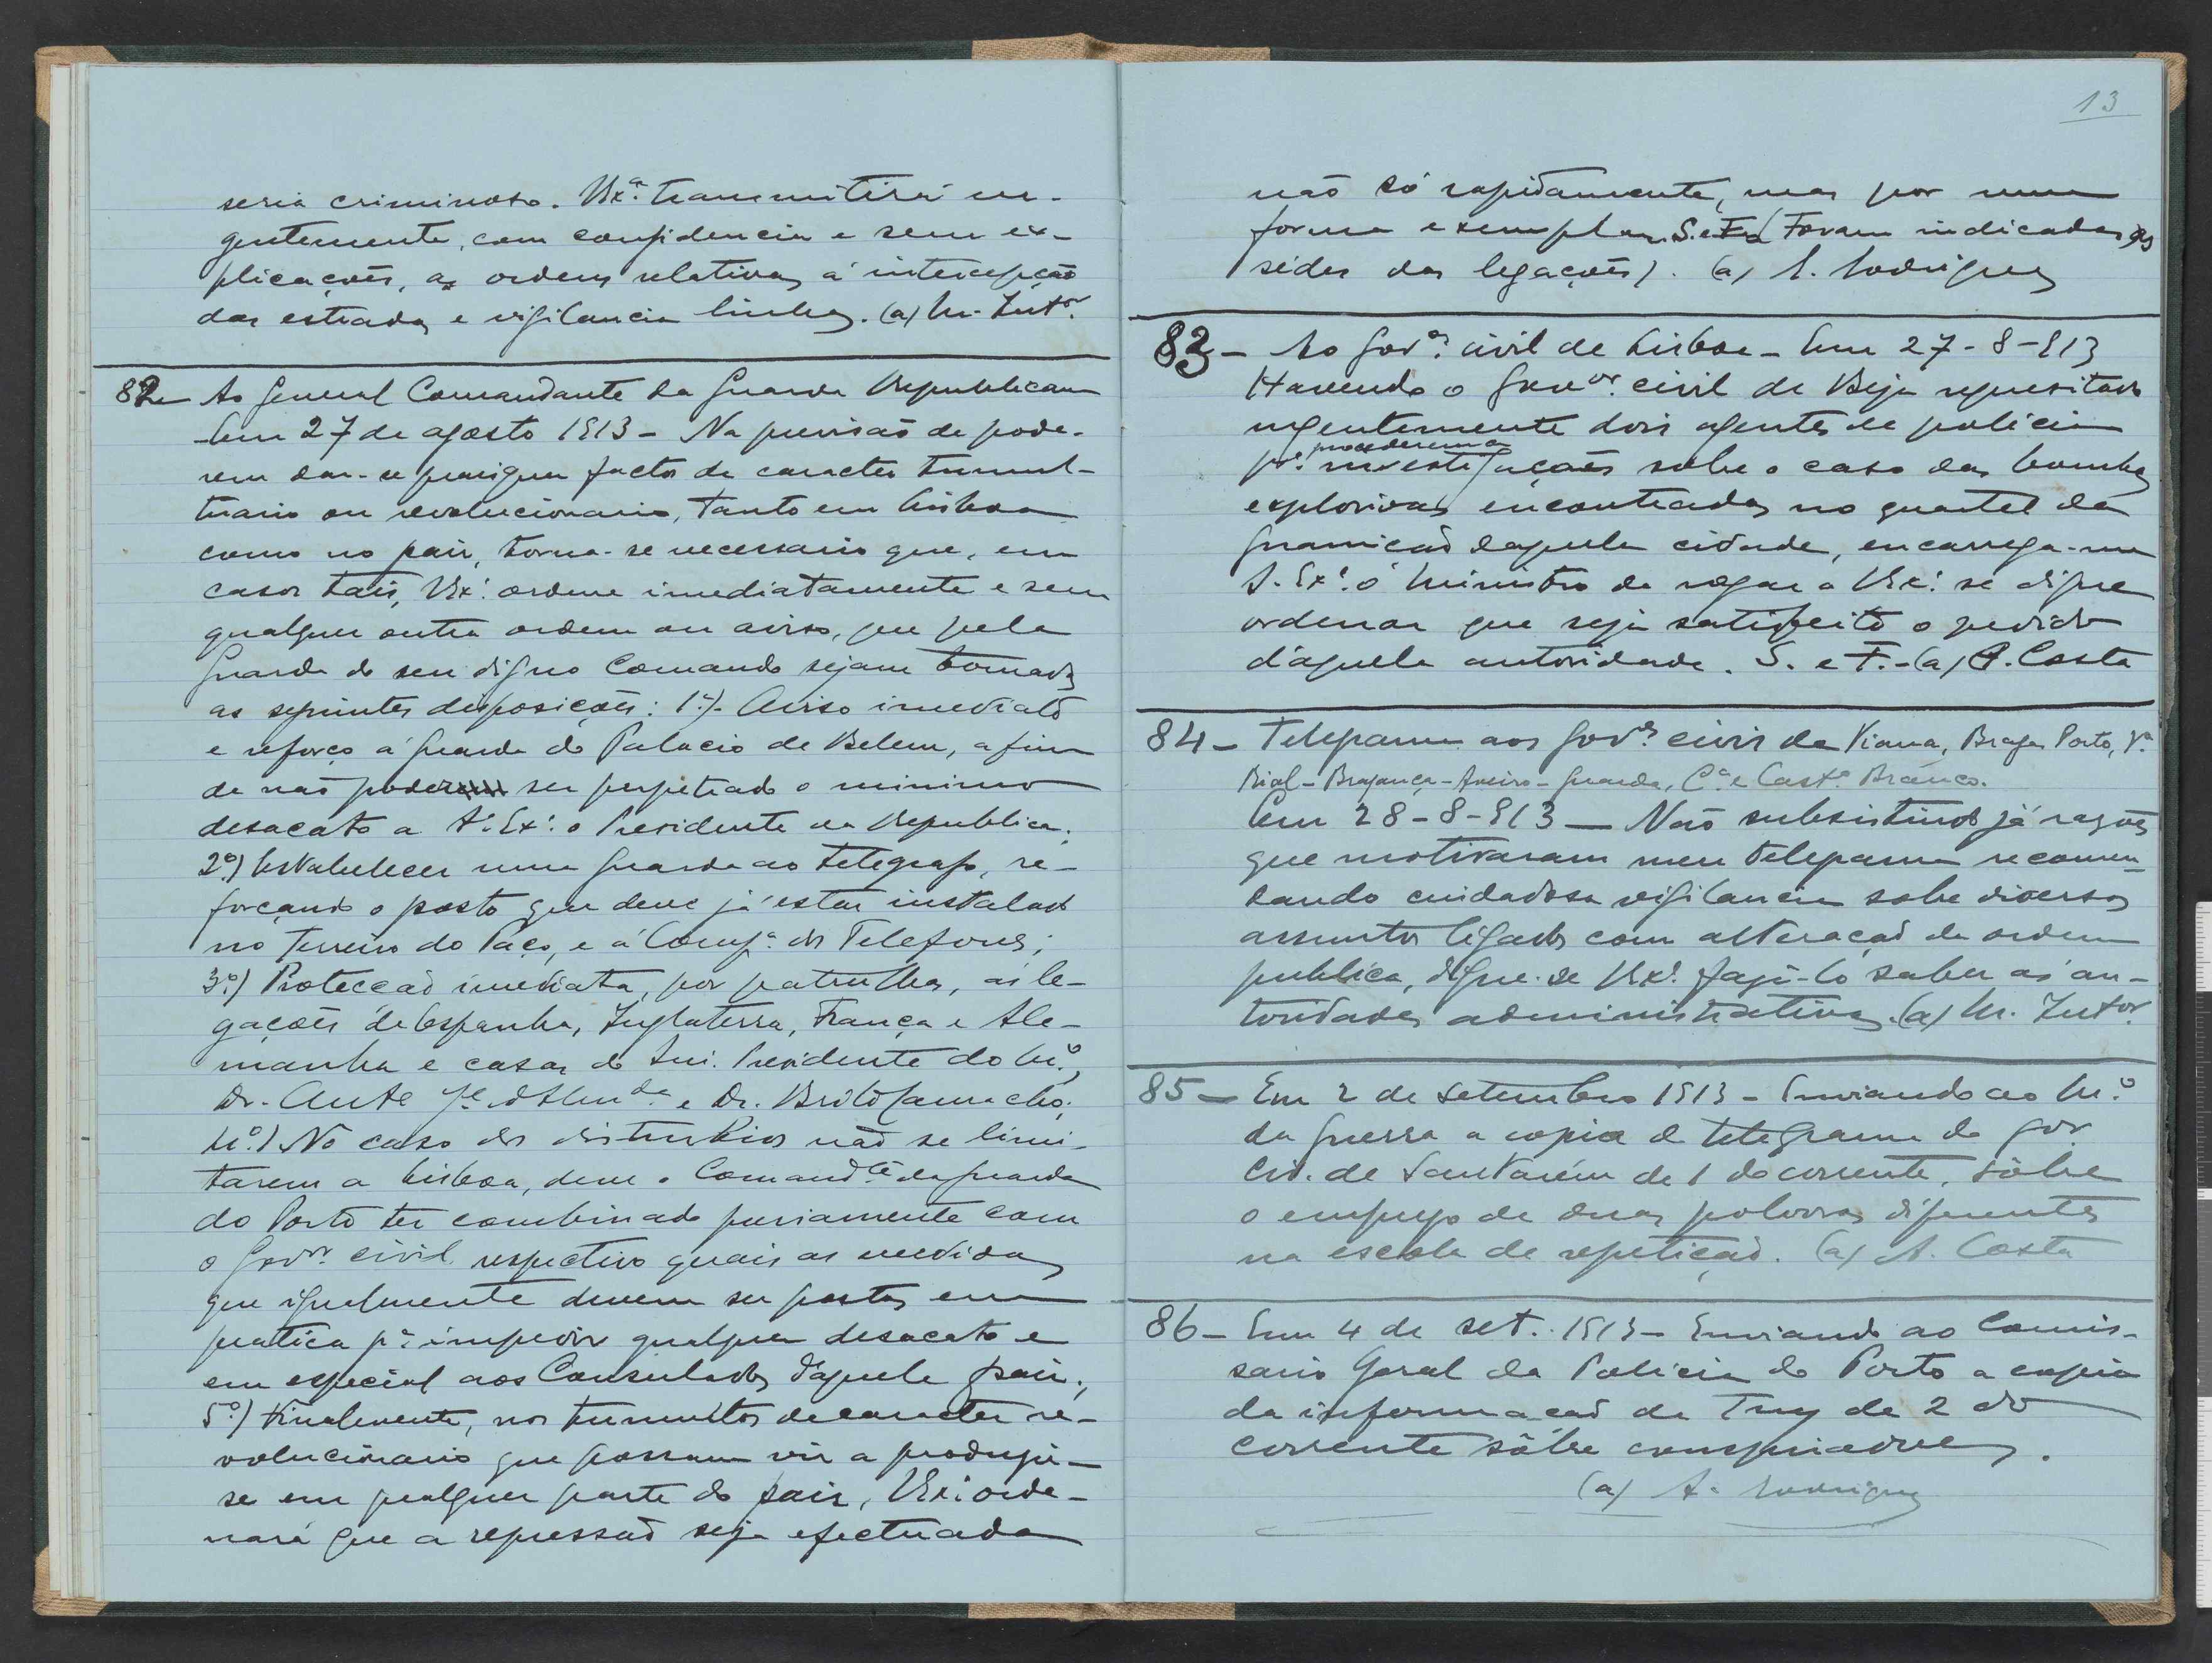 seria criminoso. V.Exª. transmitirá ur-
gentemente, com confidencia e sem ex-
plicações, as ordens relativas á intercepção
das estradas e vigilancia linhas. (a) M. Intor.
82 - Ao General Comandante da Guarda Republicana
Em 27 de agosto 1913 - Na previsão de pode-
rem dar-se quaisquer factos de caracter tumul-
tuario ou revolucionario, tanto em Lisboa
como no país, torna-se necessario que, em
casos tais, V.Exª. ordene imediatamente e sem
qualquer outra ordem ou aviso, que pela
Guarda do seu digno Comando sejam tomadas
as seguintes disposições: 1º) - Aviso imediato
e reforço á guarda do Palacio de Belem, afim
de não poder ser perpetrado o minimo
desacato a S. Exª. o Presidente da Republica.
2º) Estabelecer uma guarda ao telegrafo, re-
forçando o posto que deve já estar instalado
no Terreiro do Paço, e á Compª. dos Telefones;
3º) Protecção imediata, por patrulhas, ás le-
gações de Espanha, Inglaterra, França e Ale-
manha e casas do Snr. Presidente do Mº.,
Dr. Antº Jé d'Almdª. e Dr. Brito Camacho;
4º.) No caso dos disturbios não se limi-
tarem a Lisboa, deve o Comandte da guarda
do Porto ter combinado previamente com
o Govor. civil respectivo quais as medidas
que igualmente devem ser postas em
pratica pª impedir qualquer desacato e
em especial aos Consulados d'aquele país;
5º.) Finalmente, nos tumultos de caracter re-
volucionario que possam vir a produzir-
se em qualquer parte do país, V.Exª. orde-
nará que a repressão seja efectuada
13
não só rapidamente, mas por uma
forma exemplar. S. e F. (Foram indicadas as
sédes das legações). (a) A. Rodrigues
83 - Ao Govor. civil de Lisboa - Em 27-8-913
Havendo o Govor. civil de Beja requisitado
urgentemente dois agentes de policia
pª. procederem a investigações sobre o caso das bombas
explosivas encontradas no quartel da
guarnição daquela cidade, encarrega-me
S. Exª. o Ministro de rogar a V.Exª. se digne
ordenar que seja satisfeito o pedido
d'aquela autoridade. S. e F. - (a) A. Costa
84 - Telegrama aos Govores. civis de Viana, Braga, Porto, Vª.
Rial - Bragança - Aveiro - Guarda, Cª e Castº Branco.
Em 28-8-913 - Não subsistindo já razões
que motivaram meu telegrama recomen-
dando cuidadosa vigilancia sobre diversos
assuntos ligados com alteração da ordem
publica, digne-se V.Exª. fazê-lo saber ás au-
toridades administrativas. (a) M. Intor.
85 - Em 2 de Setembro 1913 - Enviando ao Mº.
da Guerra a copia do telegrama do Gov.
Civ. de Santarém de 1 do corrente, sôbre
o emprego de duas polvoras diferentes
na escola de repetição. (a) A. Costa
86 - Em 4 de set. 1913 - Enviando ao Comis-
sario Geral da Policia do Porto a copia
da informação de Tuy de 2 do
corrente sôbre conspiradores.
(a) A. Rodrigues